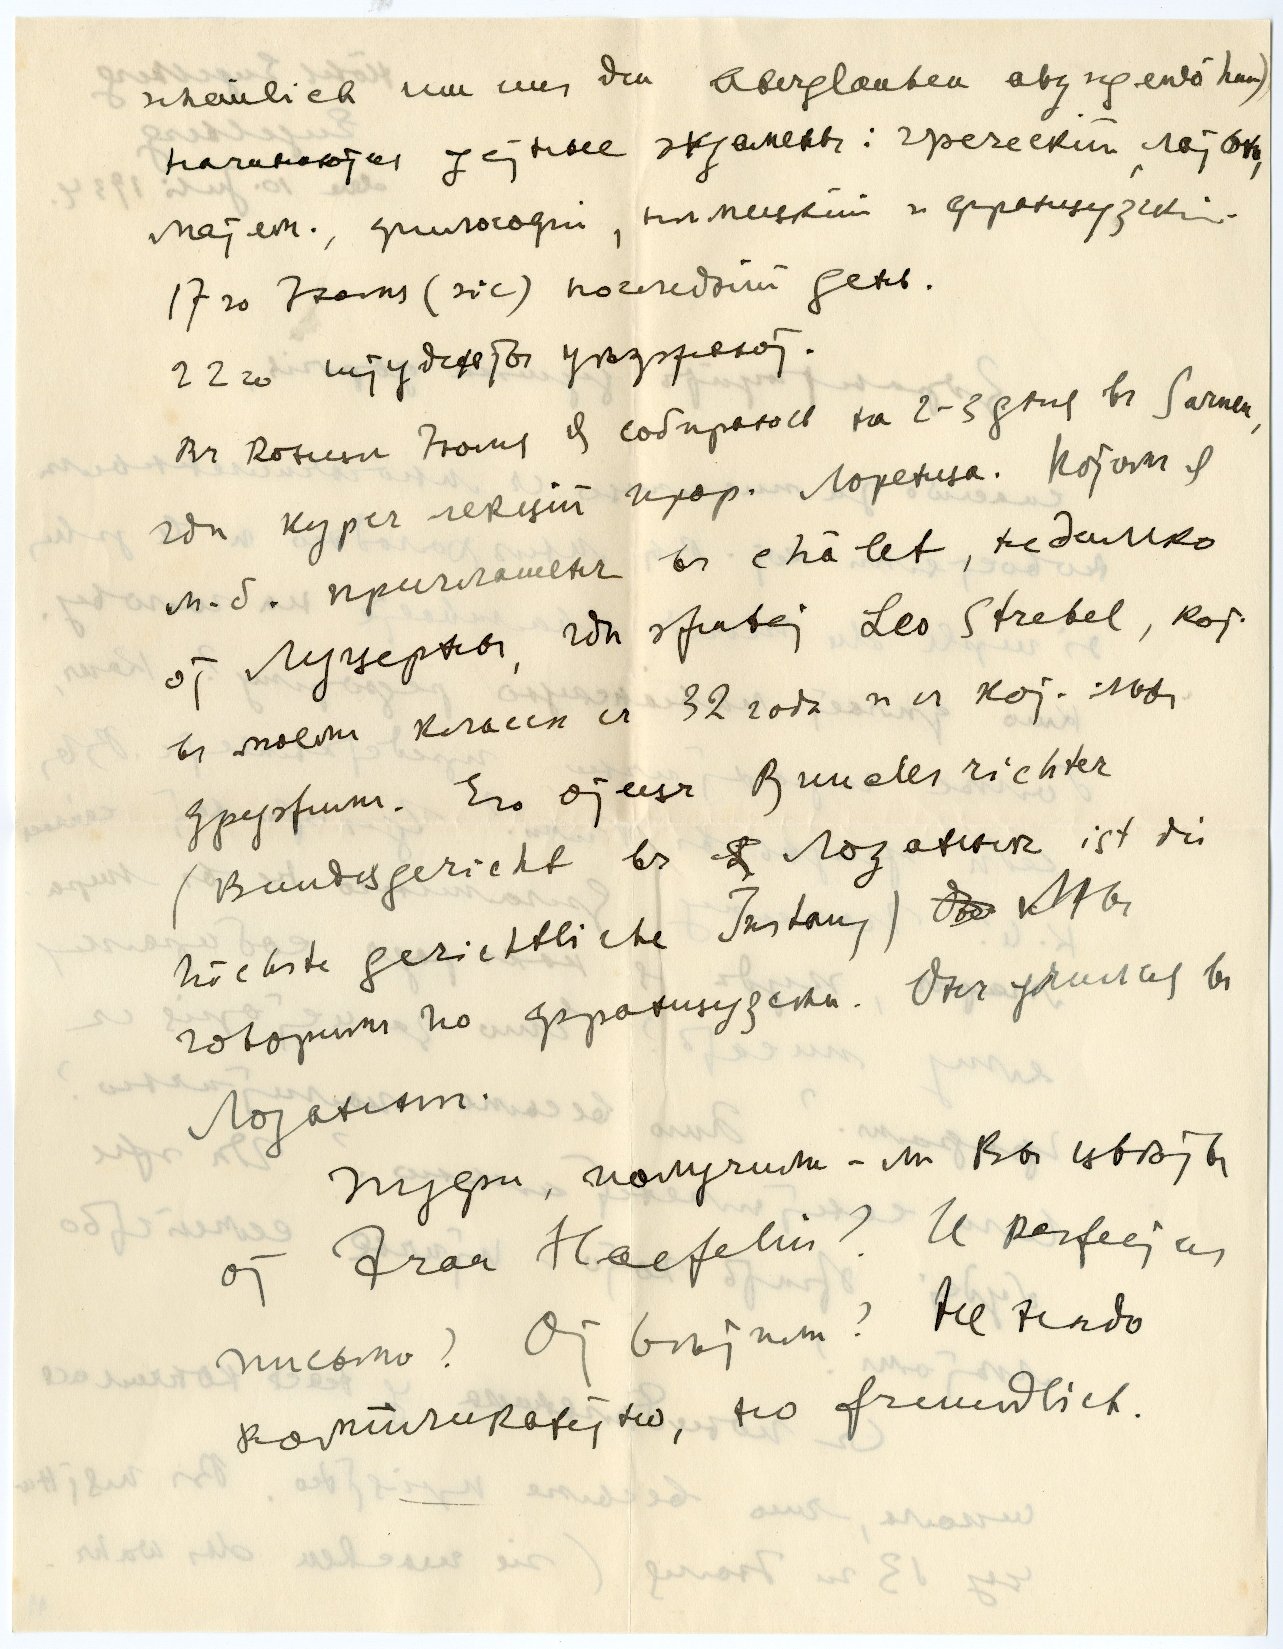 scheinlich um uns den Aberglauben abzugewöhnen)
начинаются устные экзамены: греческій, лат.,
матем., философія, нѣмецкій и французскій.
17го Iюля (sic) послѣдній день.
22го студенты уѣзжают.
Въ концѣ Iюля я собираюсь на 2-3 дня въ Sarnen,
гдѣ курсъ лекцій проф. Лоренца. Потом я
м.б. приглашенъ въ châlet, недалеко
от Луцерны, гдѣ живет Leo Strebel, кот.
въ моем классѣ съ 32 года и съ кот. мы
дружим. Его отецъ Bundesrichter
(Bundesgericht въ Лозаннѣ ist die
höchste gerichtliche Instanz) и мы
говорим по французски. Онъ учился въ
Лозаннѣ.
Пудри, получили-ли Вы цвѣты
от Frau Haefelin? И кажется
письмо? Отвѣтим? Не надо
компликантно, но freundlich.